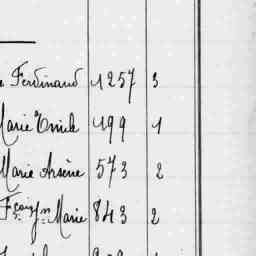 Ferdinand 1257 3
Marie Emile 499 1
Marie Arsène 573 2
Fçois Jn Marie 843 2